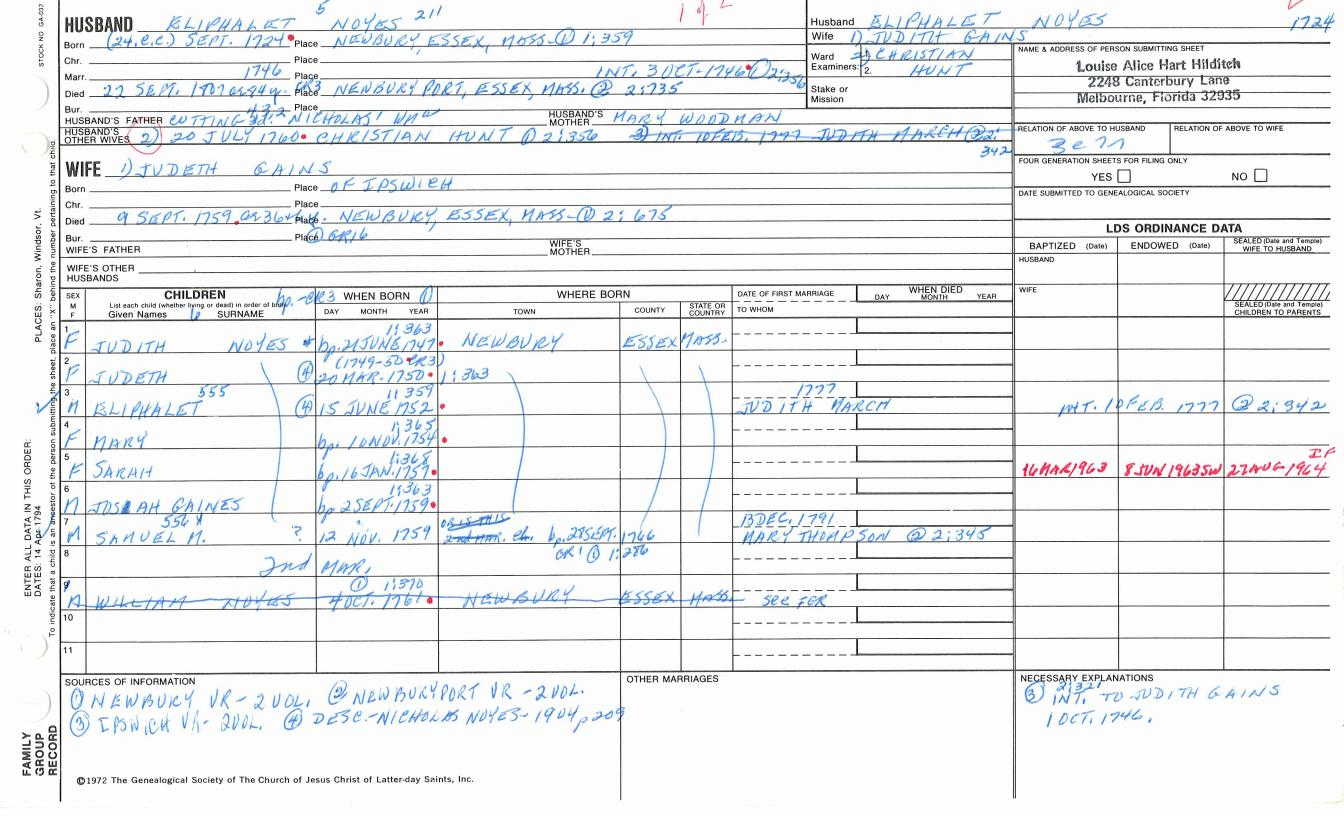 5
HUSBAND ELIPHALET NOYES 211
Born (24.C.C.) SEPT. 1724 Place NEWBURY, ESSEX, MASS-① 1;359
Chr. Place
Marr. 1746 Place INT. 3 OCT-1746 ① 2;356
Died 22 SEPT. Place NEWBURY PORT, ESSEX, MASS. ② 2;735
Bur. Place
HUSBAND'S FATHER CUTTING NICHOLAS HUSBAND'S MOTHER MARY WOODMAN
HUSBAND'S OTHER WIVES 2) 20 JULY 1760 CHRISTIAN HUNT ① 2;356 3) INT. 10 FEB. 1777 JUDITH MARCH ② 2;
342
WIFE 1) JUDETH GAINS
Born Place OF IPSWICH
Chr. Place
Died 9 SEPT. 1759 Place NEWBURY, ESSEX, MASS-① 2; 675
Bur. Place ① GR16
WIFE'S FATHER WIFE'S MOTHER
WIFE'S OTHER HUSBANDS
Husband ELIPHALET NOYES 1724
Wife 1) JUDITH GAINS
Ward Examiners: 1. 2) CHRISTIAN
2. HUNT
Stake or Mission
NAME & ADDRESS OF PERSON SUBMITTING SHEET
Louise Alice Hart Hilditch
2248 Canterbury Lane
Melbourne, Florida 32935
RELATION OF ABOVE TO HUSBAND RELATION OF ABOVE TO WIFE
FOUR GENERATION SHEETS FOR FILING ONLY
YES NO
DATE SUBMITTED TO GENEALOGICAL SOCIETY
LDS ORDINANCE DATA
BAPTIZED (Date) ENDOWED (Date) SEALED (Date and Temple) WIFE TO HUSBAND
HUSBAND
WIFE
SEALED (Date and Temple) CHILDREN TO PARENTS
SEX M F
CHILDREN
List each child (whether living or dead) in order of birth
Given Names SURNAME
bp.-CR3 WHEN BORN ①
DAY MONTH YEAR
WHERE BORN
TOWN COUNTY STATE OR COUNTRY
DATE OF FIRST MARRIAGE
TO WHOM
WHEN DIED
DAY MONTH YEAR
1 1;363
F JUDITH NOYES bp. 21 JUNE 1747 NEWBURY ESSEX MASS.
2 (1749-50 CR3)
F JUDETH ④ 20 MAR. 1750 1;363
3 555 1;359 1777
M ELIPHALET ④ 15 JUNE 1752 JUDITH MARCH INT. 10 FEB. 1777 @ 2;342
4 1;365
F MARY bp. 10 NOV. 1754
5 1;368 IF
F SARAH bp. 16 JAN. 1757 16 MAR 1963 8 JUN 1963 SW 27 AUG 1964
6 1;363
M JOSIAH GAINES bp 2 SEPT. 1759
7 556 OR IS THIS 13 DEC. 1791
M SAMUEL M. ? 12 NOV. 1759 2nd MAR. bp. 28 SEPT. 1766 MARY THOMPSON @ 2;345
8 CR1 ① 1;286
2nd MAR.
9 ① 1;370
M WILLIAM NOYES 4 OCT. 1761 NEWBURY ESSEX MASS. SEE FGR
10
11
SOURCES OF INFORMATION
① NEWBURY VR - 2 VOL. ② NEWBURYPORT VR - 2 VOL.
③ IPSWICH VR - 2 VOL. ④ DESC.-NICHOLAS NOYES-1904 p 209
OTHER MARRIAGES
NECESSARY EXPLANATIONS
③ 2;321 INT. TO JUDITH GAINS
1 OCT. 1746.
©1972 The Genealogical Society of The Church of Jesus Christ of Latter-day Saints, Inc.
STOCK NO GA-037
PLACES: Sharon, Windsor, Vt.
ENTER ALL DATA IN THIS ORDER:
DATES: 14 Apr 1794
To indicate that a child is an ancestor of the person submitting the sheet, place an "X" behind the number pertaining to that child.
FAMILY
GROUP
RECORD